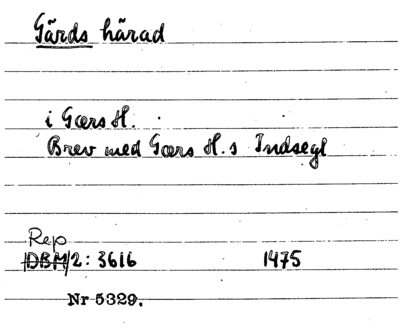 Gärds härad
i Gærs H.
Brev med Gærs H.s Indsegl
Rep
DBM/2: 3616 1475
Nr 5329.